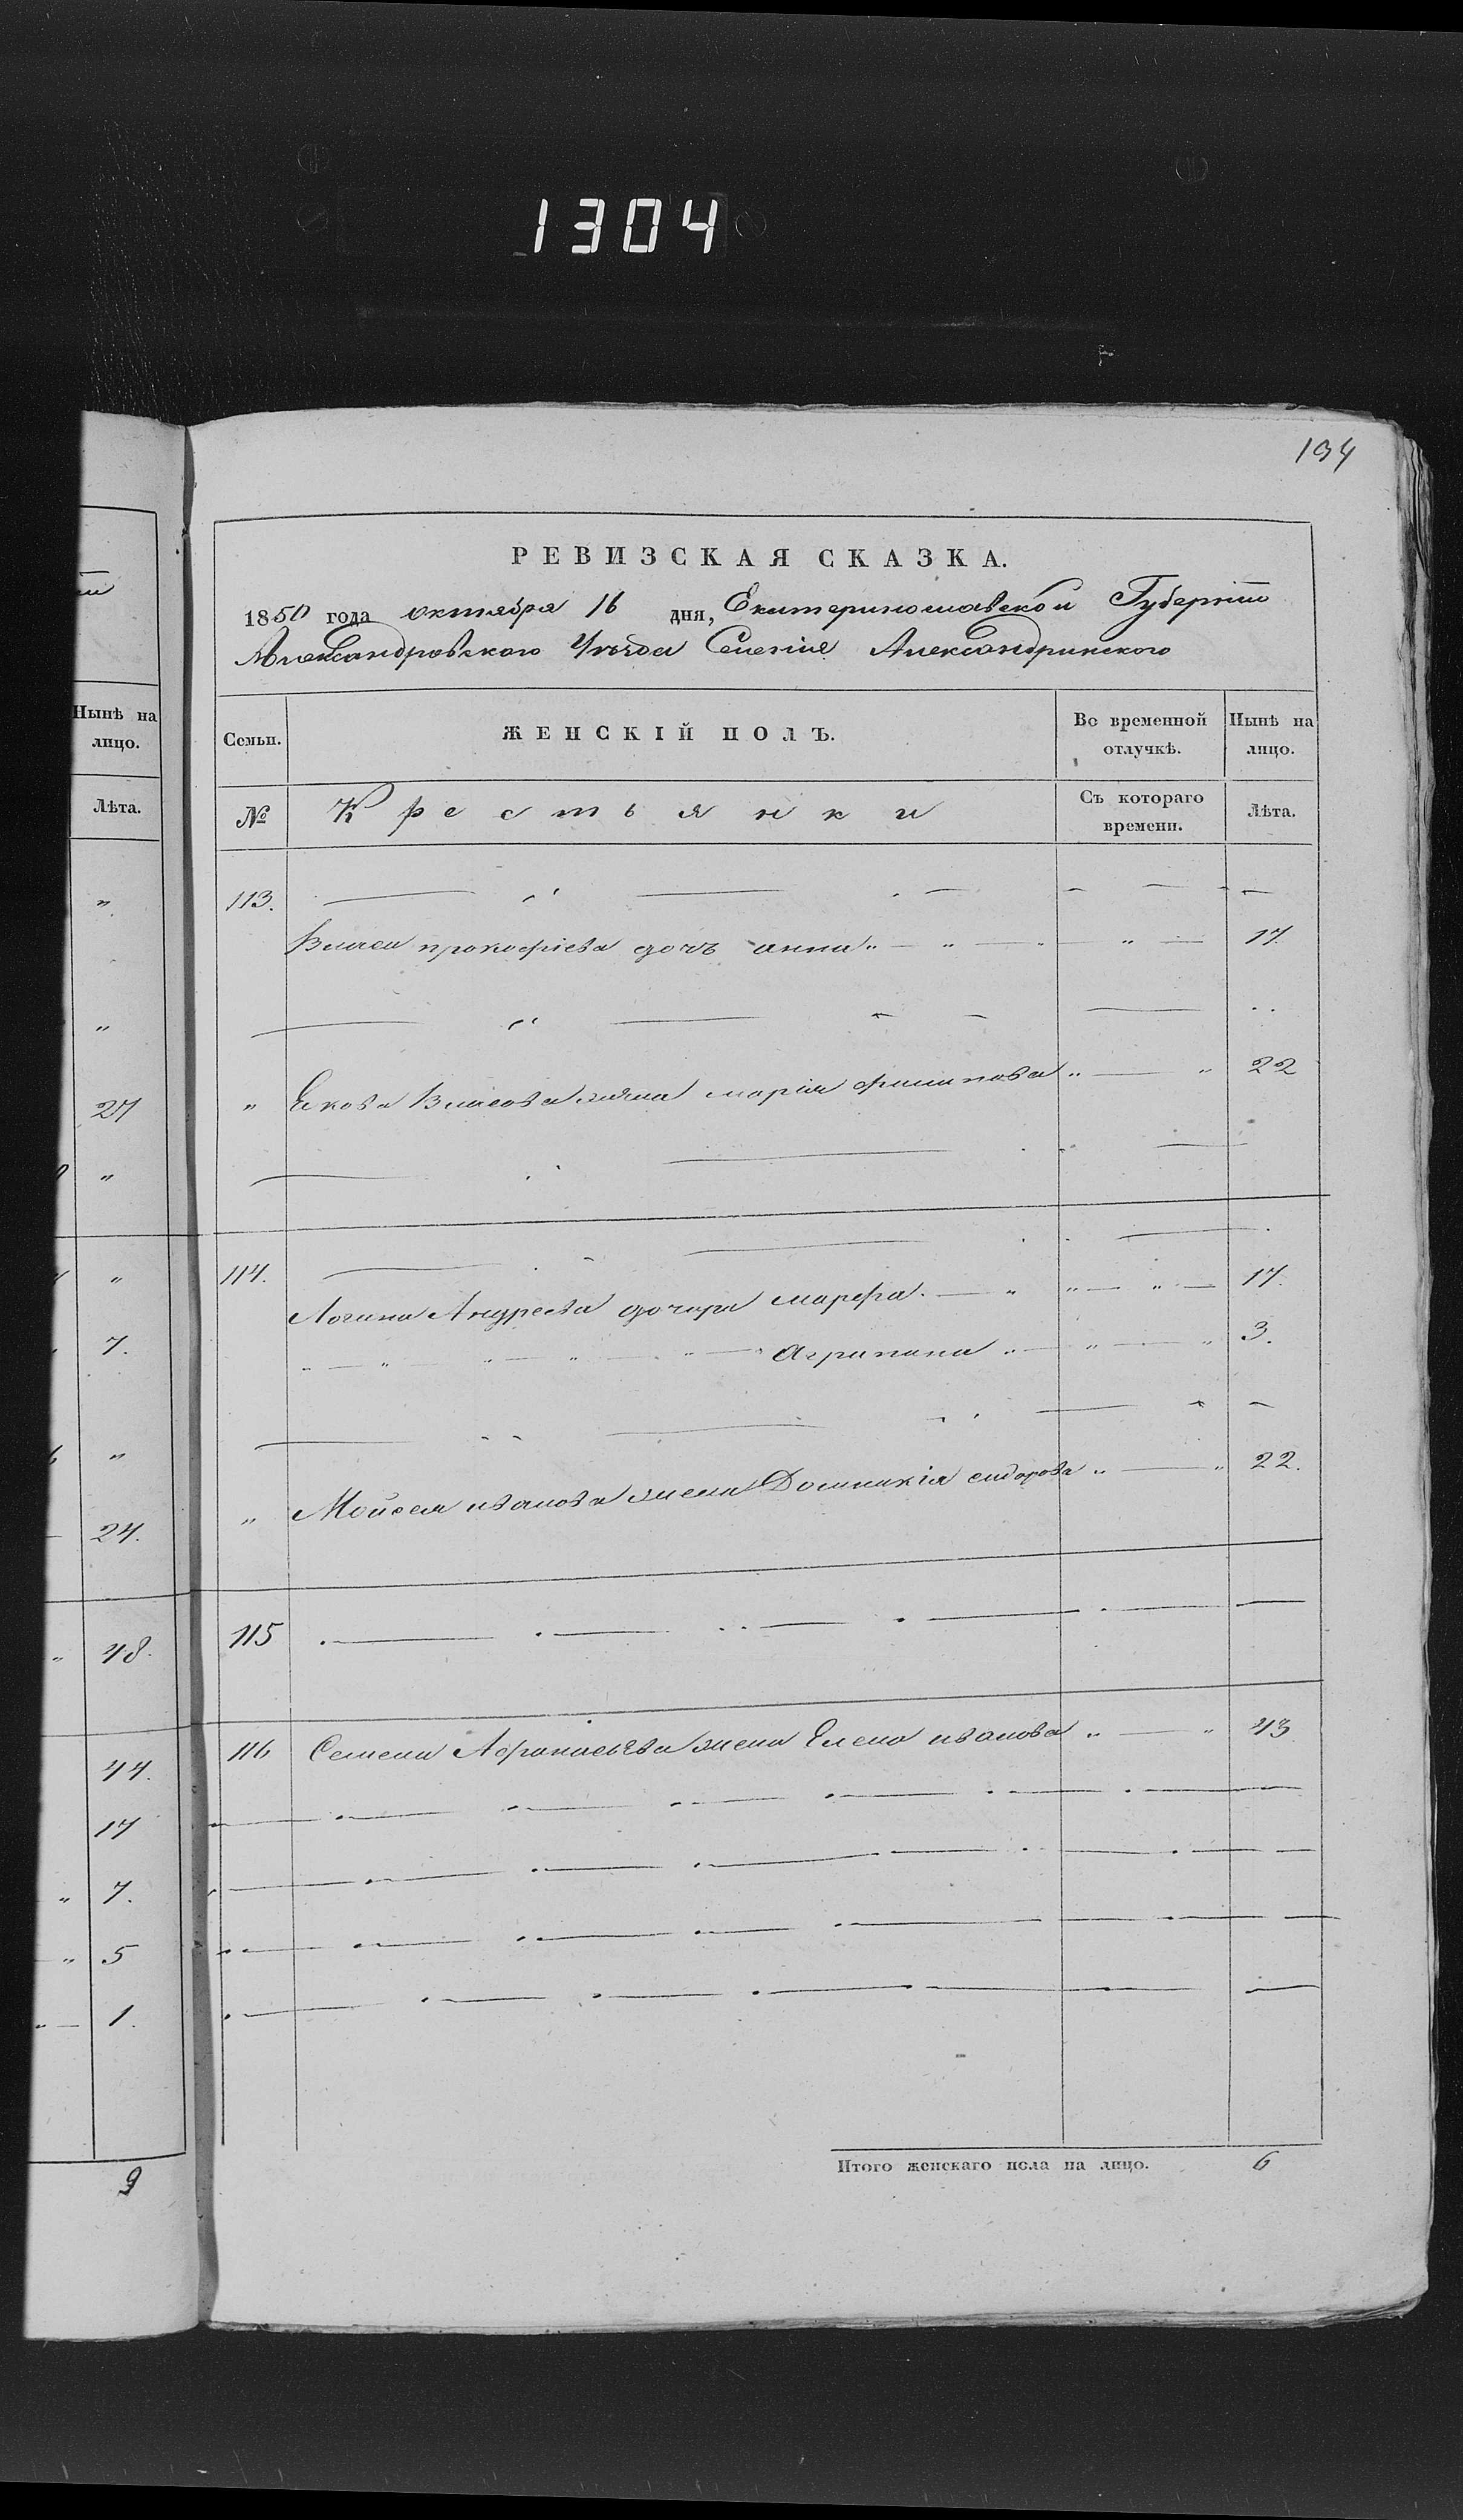 1304
194
РЕВИЗСКАЯ СКАЗКА.
1850 года октября 16 дня, Екатеринославской Губернiи
Александровского Уѣзда Селенiе Александринского
Семьи.
ЖЕНСКІЙ ПОЛЪ.
Во временной отлучкѣ.
Нынѣ на лицо.
№
Крестьянки
Съ котораго времени.
Лѣта.
113.
Власа прокофіева дочь анна " — " — " " — 17.
" Якова Власова жена марія филипова " — " 22
114.
Логина Андреева дочери марфа. — " " — " — 17.
" — " " — " — " — Агрипина " — " — " 3.
" Мойсея иванова жена Домникія сидорова " — " 22.
115
116 Семена Афанасьева жена Елена иванова " — " 43
Итого женскаго пола на лицо. 6
Нынѣ на лицо.
Лѣта.
"
"
27
"
"
7.
"
24.
48.
44.
17
" 7.
" 5
" — 1.
9